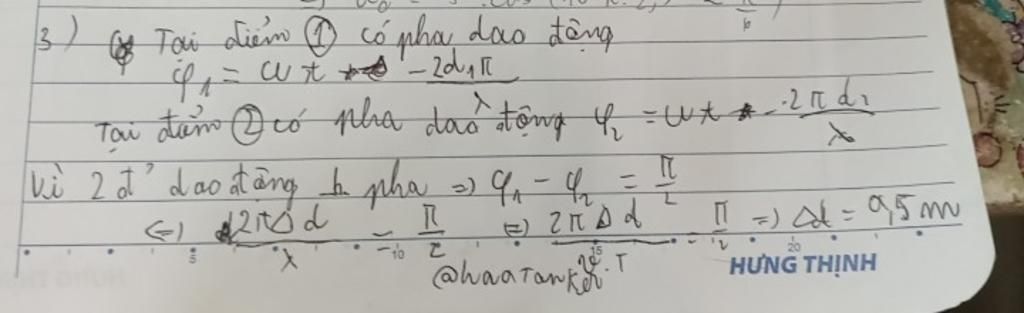 3) Tại điểm ① có pha dao động
φ₁ = ωt - 2d₁π / λ
Tại điểm ② có pha dao động φ₂ = ωt - 2πd₂ / λ
Vì 2 đ' dao động ⊥ pha ⇒ φ₁ - φ₂ = π/2
⇔ 2πΔd / λ = π/2 ⇔ 2πΔd / v.T = π/2 ⇒ Δd = 0,5 m
5 10 15 20
HƯNG THỊNH